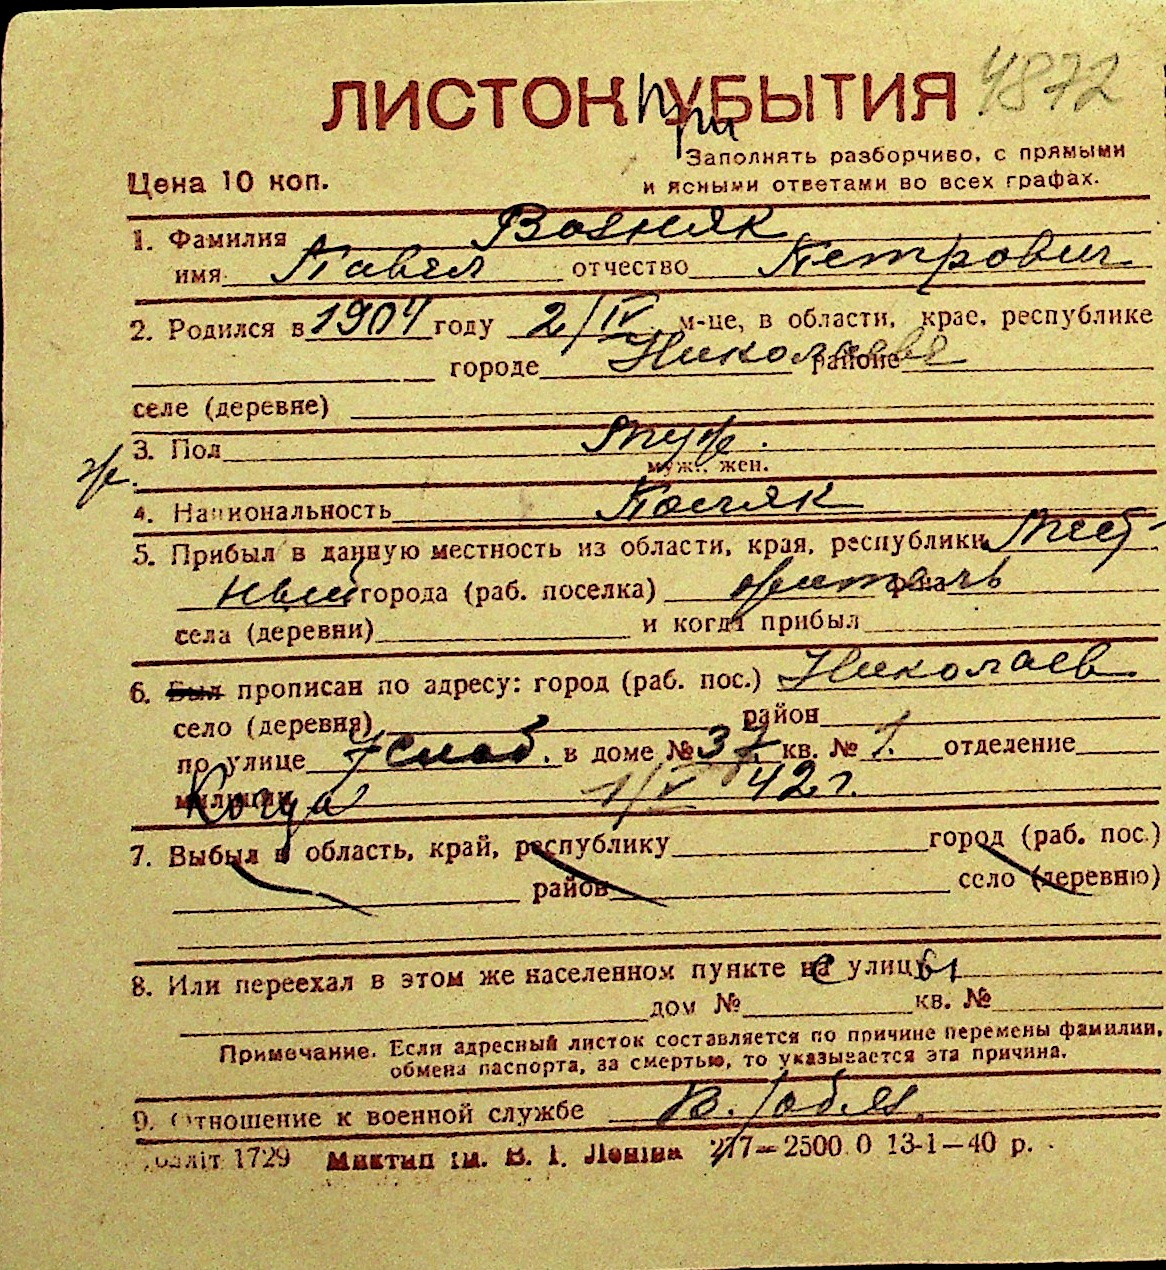 ЛИСТОК УБЫТИЯ 4872
при
Заполнять разборчиво, с прямыми
Цена 10 коп. и ясными ответами во всех графах.
1. Фамилия Возняк
имя Павел отчество Петрович
2. Родился в 1904 году 2/IV м-це, в области, крае, республике
городе Николаеве районе
селе (деревне)
3. Пол муж.
муж., жен.
4. Национальность Поляк
5. Прибыл в данную местность из области, края, республики Мест-
ный города (раб. поселка) житель р-на
села (деревни) и когда прибыл
6. Был прописан по адресу: город (раб. пос.) Николаев
село (деревня) район
по улице 7 Слоб. в доме № 37 кв. № 1. отделение
милиции Когда 1/V 42 г.
7. Выбыл в область, край, республику город (раб. пос.)
район село (деревню)
8. Или переехал в этом же населенном пункте с улицы
дом № кв. №
Примечание. Если адресный листок составляется по причине перемены фамилии,
обмена паспорта, за смертью, то указывается эта причина.
9. Отношение к военной службе
1729 Миктип ім. В. І. Леніна 217—2500 0 13-1—40 р.